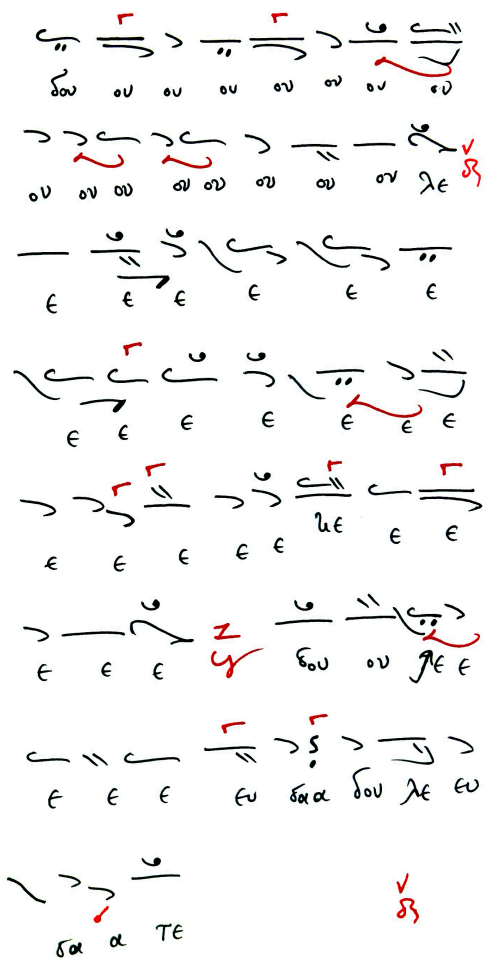 δου ου ου ου ου ου ου ου
ου ου ου ου ου ου ου ου λε
ε ε ε ε ε ε
ε ε ε ε ε ε ε
ε ε ε ε ε ε ε
ε ε ε δου ου ε
ε ε ε ευ δου λε ευ
σα α τε